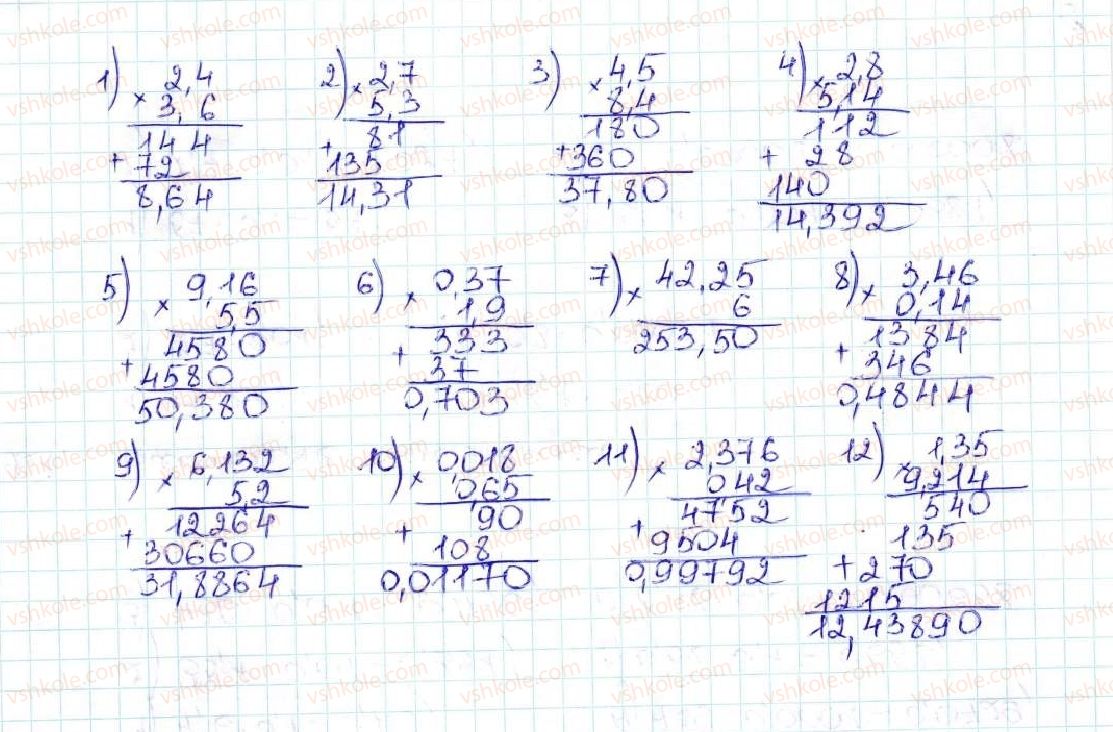 1) 2,4 2) 2,7 3) 4,5 4) 2,8
× 3,6 × 5,3 × 8,4 × 5,14
144 81 180 112
+ 72 + 135 + 360 + 28
8,64 14,31 37,80 140
14,392
5) 9,16 6) 0,37 7) 42,25 8) 3,46
× 5,5 × 1,9 × 6 × 0,14
4580 333 253,50 1384
+ 4580 + 37 + 346
50,380 0,703 0,4844
9) 6,132 10) 0,018 11) 2,376 12) 1,35
× 5,2 × 0,65 × 0,42 × 9,214
12264 90 4752 540
+ 30660 + 108 + 9504 135
31,8864 0,01170 0,99792 + 270
1215
12,43890
vshkole.com